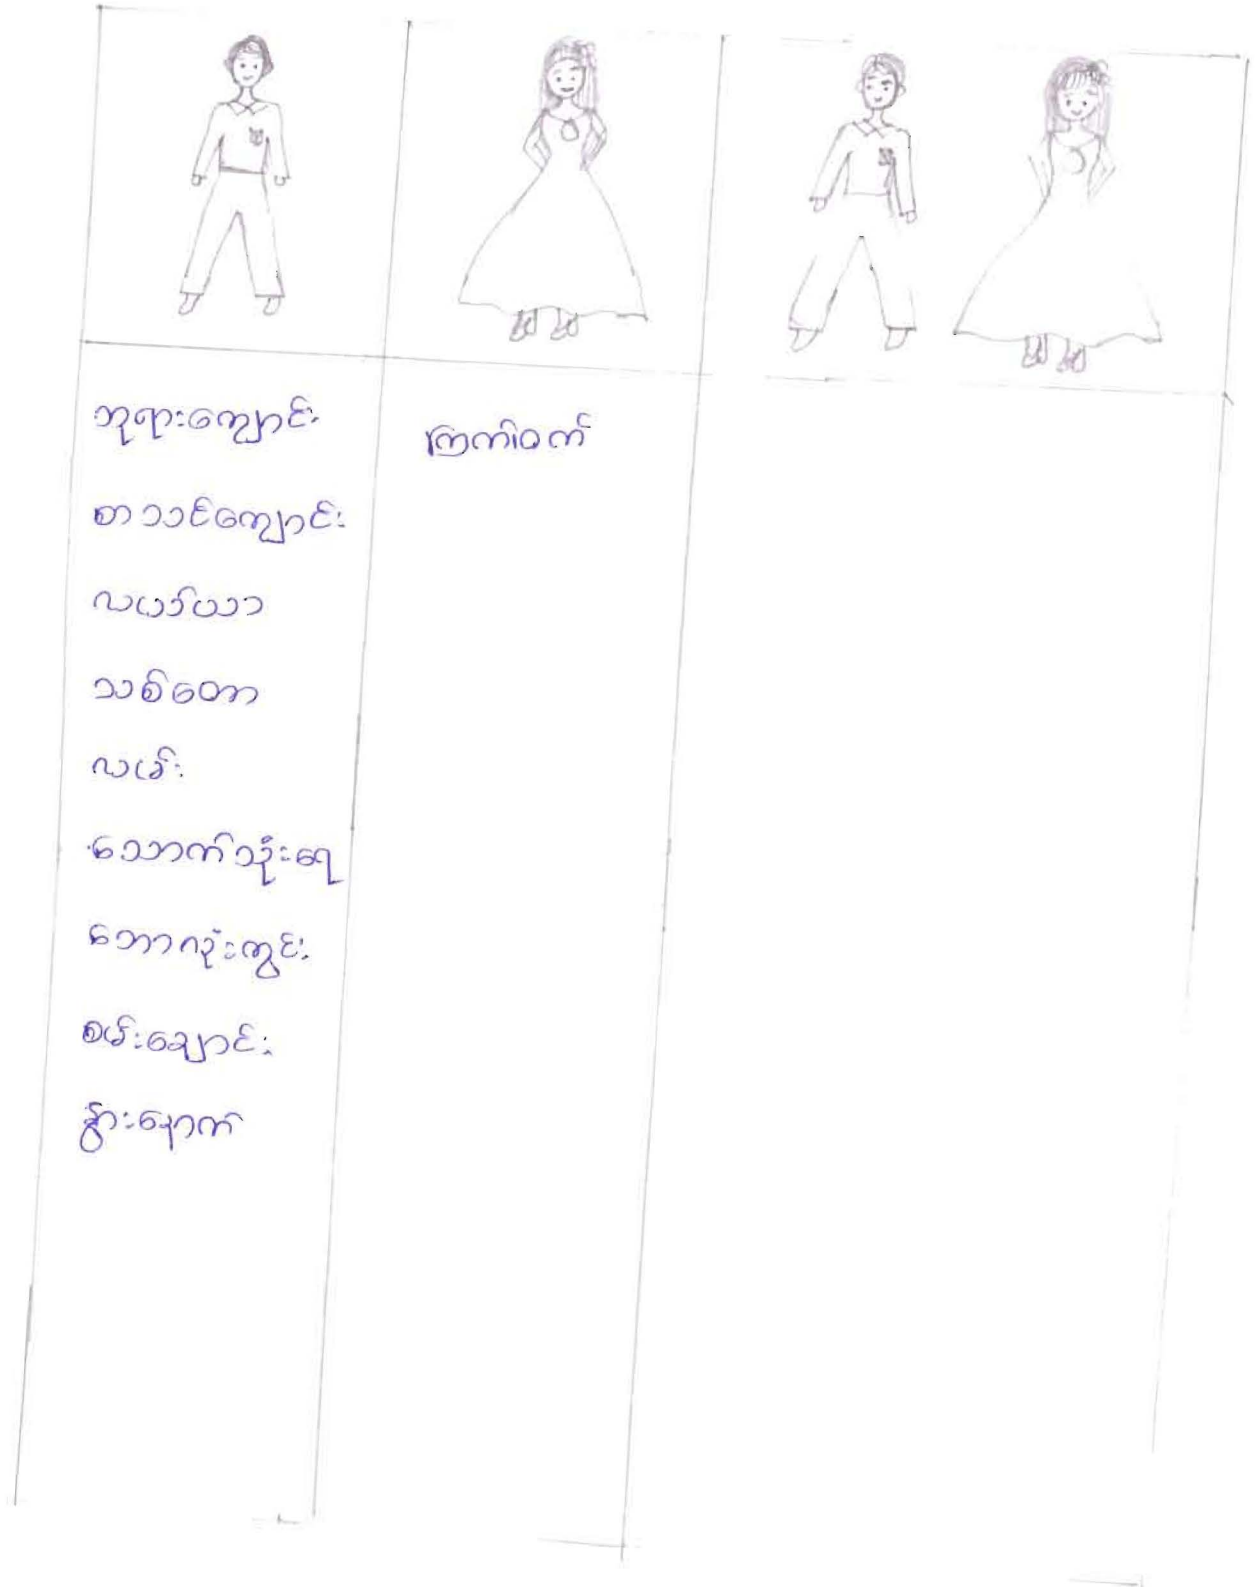 ဘုရားကျောင်း
စာသင်ကျောင်း
လယ်ယာ
သစ်တော
လမ်း
သောက်သုံးရေ
ဘောလုံးကွင်း
စမ်းချောင်း
နွားနောက်
ကြက်ဝက်